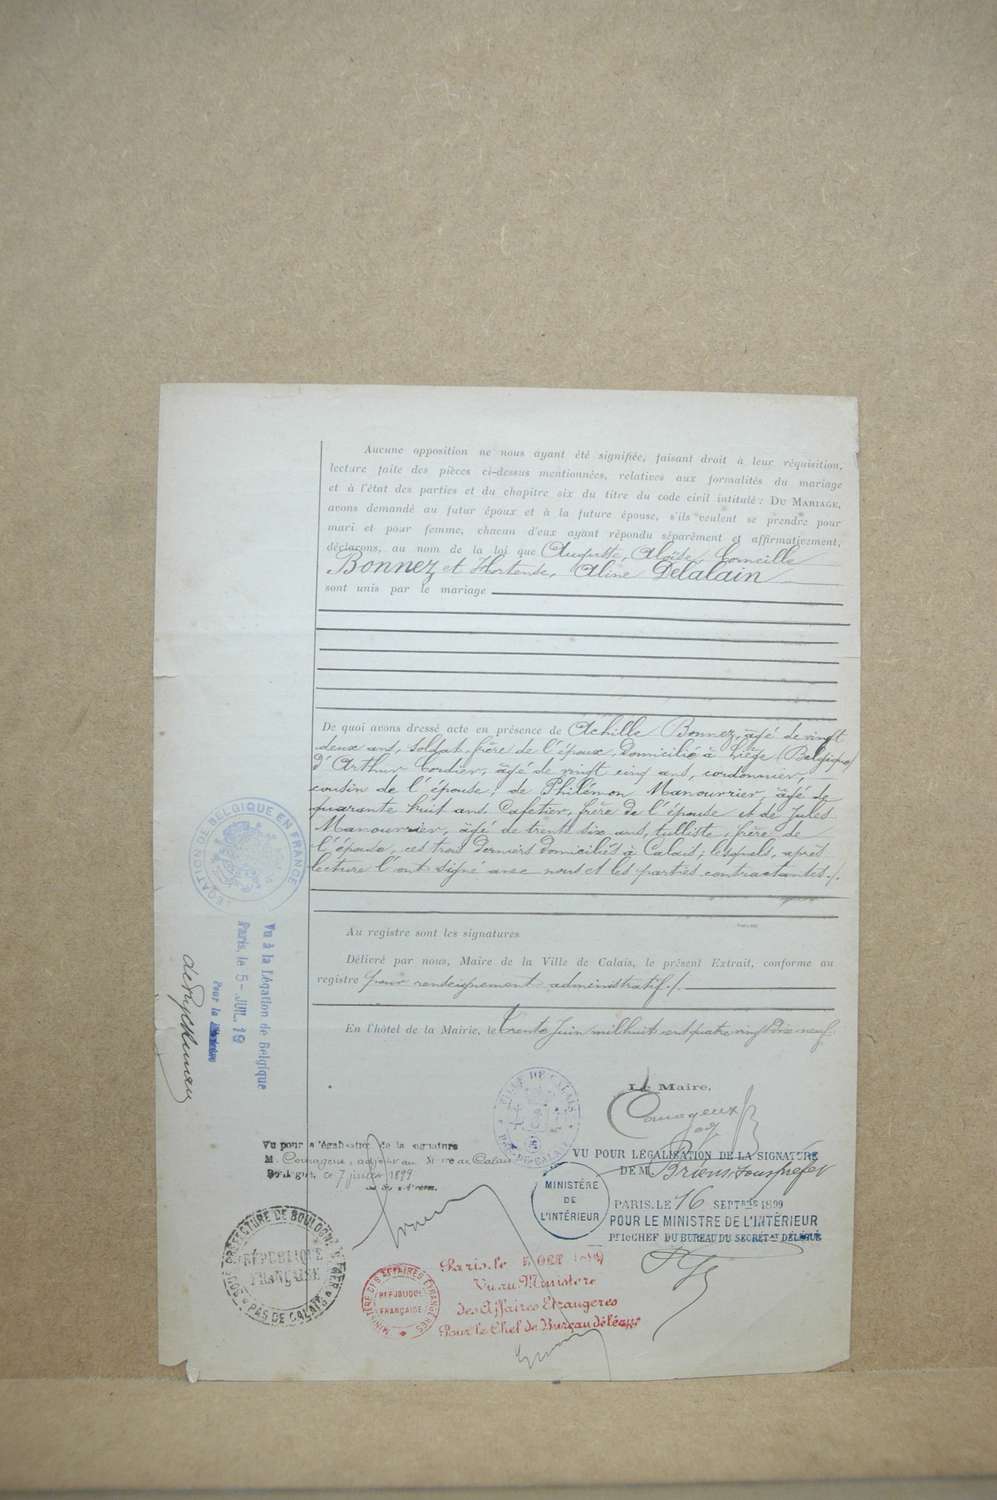 Aucune opposition ne nous ayant été signifiée, faisant droit à leur réquisition,
lecture faite des pièces ci-dessus mentionnées, relatives aux formalités du mariage
et à l'état des parties et du chapitre six du titre du code civil intitulé : DU MARIAGE,
avons demandé au futur époux et à la future épouse, s'ils veulent se prendre pour
mari et pour femme, chacun d'eux ayant répondu séparément et affirmativement,
déclarons, au nom de la loi que Auguste, Aloïse, Corneille
Bonnez et Hortense, Aline Delalain
sont unis par le mariage
De quoi avons dressé acte en présence de Achille Bonnez, âgé de vingt
deux ans, soldat, frère de l'époux, domicilié à Liège (Belgique)
d'Arthur Cordier, âgé de vingt cinq ans, cordonnier,
cousin de l'épouse; de Philémon Manourrier, âgé de
quarante huit ans, Cafetier, frère de l'épouse et de Jules
Manourrier, âgé de trente six ans, tulliste, frère de
l'épouse, ces trois derniers domiciliés à Calais, lesquels, après
lecture l'ont signé avec nous et les parties contractantes./.
Au registre sont les signatures
Délivré par nous, Maire de la Ville de Calais, le présent Extrait, conforme au
registre pour renseignement administratif./.
En l'hôtel de la Mairie, le trente Juin mil huit cent quatre vingt dix neuf.
Le Maire,
Courageux
adj
VILLE DE CALAIS
PAS-DE-CALAIS
LÉGATION DE BELGIQUE EN FRANCE
Vu à la Légation de Belgique
Paris, le 5 - JUIL. 19
Pour la
Vu pour légalisation de la signature
M. Courageux, adjoint au Maire de Calais
Boulogne, le 7 juillet 1899
SOUS-PRÉFECTURE DE BOULOGNE S/MER
RÉPUBLIQUE
FRANÇAISE
PAS DE CALAIS
VU POUR LÉGALISATION DE LA SIGNATURE
DE M. Briens sous préfet
PARIS. LE 16 SEPTBRE 1899
POUR LE MINISTRE DE L'INTÉRIEUR
Pr le CHEF DU BUREAU DU SECRÉTAT DÉLÉGUÉ
MINISTÈRE
DE
L'INTÉRIEUR
Paris. le 5 OCT 1899
Vu au Ministère
des Affaires Etrangères
Pour le Chef de Bureau délégué
MINISTÈRE DES AFFAIRES ÉTRANGÈRES
RÉPUBLIQUE
FRANÇAISE